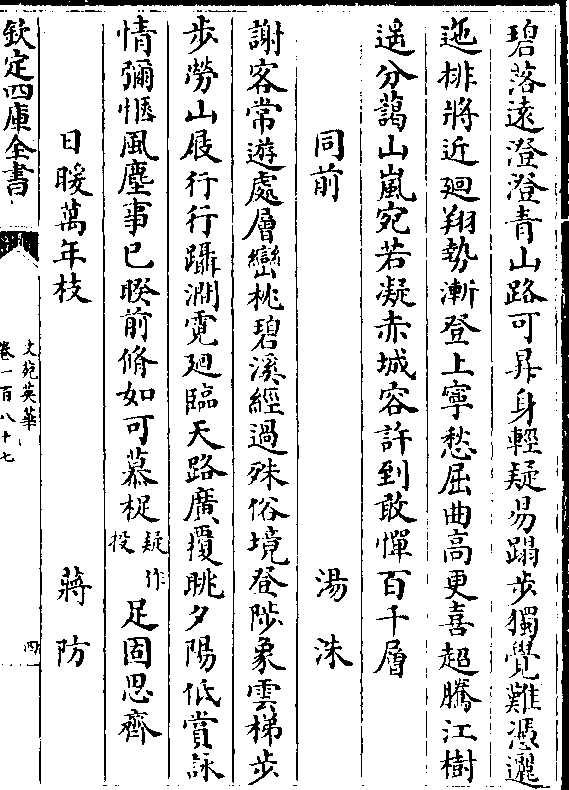 碧落遠澄澄青山路可昇身輕疑易蹋步獨覺難憑邐
迤排將近廻翔勢漸登上寧愁屈曲高更喜超騰江樹
遥分藹山嵐宛若凝赤城容許到敢憚百千層
同前　湯洙
謝客常遊處層巒桃碧溪經過殊俗境登陟象雲梯步
步勞山屐行行躡澗霓廻臨天路廣覆眺夕陽低賞詠
情彌愜風塵事已暌前脩如可慕梎疑作投足固思齊
日暖萬年枝　蔣防
欽定四庫全書　文苑英華　卷一百八十七　四